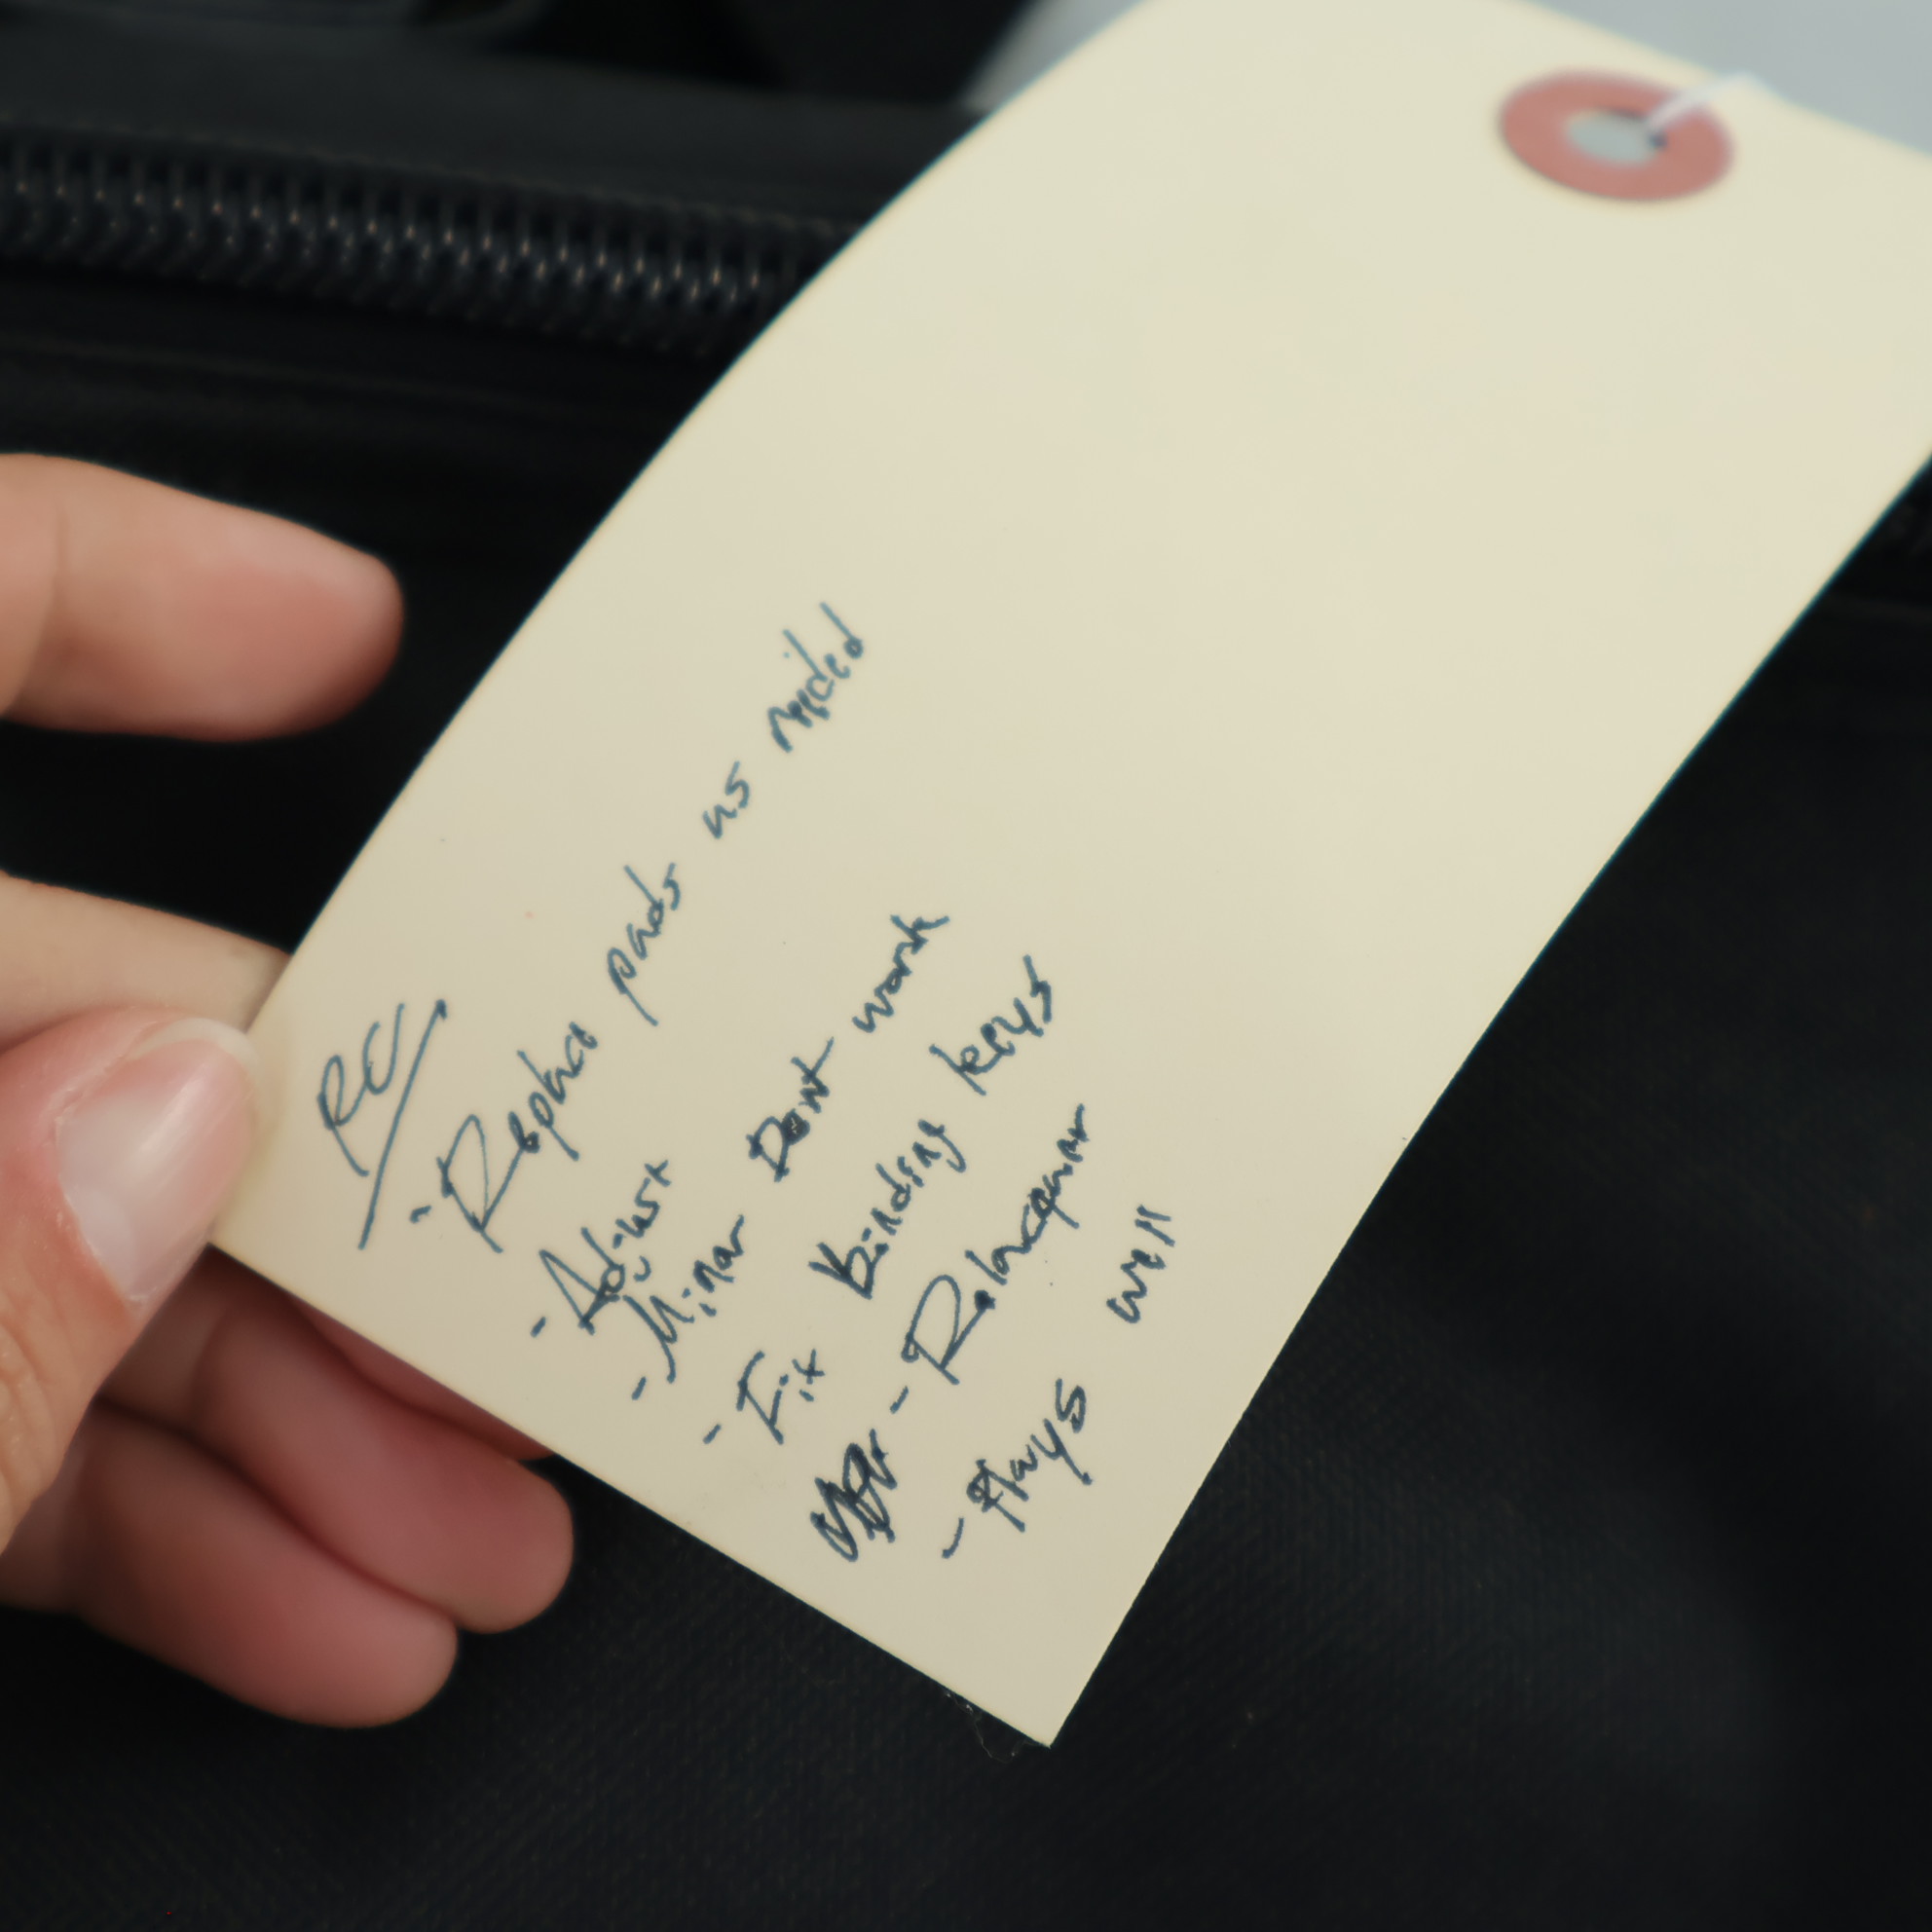 RC/
- Replace pads as needed
- Adjust
- Minor Dent work
- Fix binding keys
- Relacquer
- Plays well